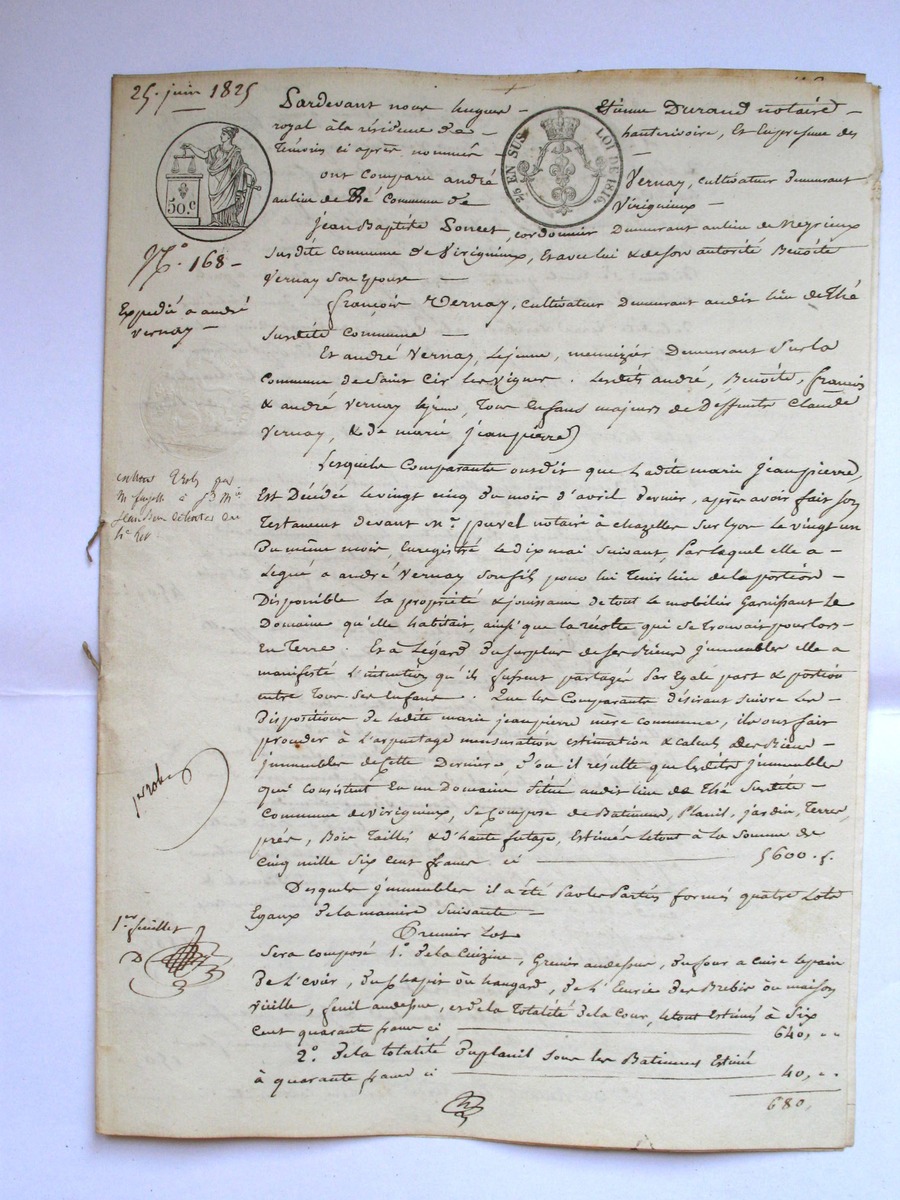 25. juin 1825
50.c
N.º 168 –
Expedié a andré
vernay –
1.er feuillet
25 EN SUS
LOI DE 1816
Pardevant nous hugue – Etienne Durand notaire –
royal à la résidence d'a – hauterivoire, Et Enpresence des
Temoins ci après nommés –
ont Comparu andré Vernay, cultivateur demeurant
aulieu de thé Commune de Virigneux –
jean Baptiste , cordonnier Demeurant aulieu de
Susdite commune de Virigneux, Et avec lui & de son autorité Benoîte
Vernay son Epouse –
françois Vernay, cultivateur Demeurant audit lieu de thé
Susdite commune –
Et andré Vernay, Lejeune, menuizier Demeurant Sur la
Commune de Saint Cir les vignes . Lesdits andré, Benoîte, françois
& andré Vernay lejeune, Tous Enfans majeurs de Deffunts Claude
Vernay, & de marie jeanpierre
Lesquels Comparants ont dit que Ladite marie jeanpierre,
Est Décédée le vingt cinq du mois d'avril dernier, après avoir fait son
Testament devant m.e notaire à chazelles Sur Lyon le vingt un
Du même mois, Enregistré le dix mai suivant, Par laquel elle a –
Legué a andré Vernay Son fils pour lui Tenir lieu de la portion –
Disponible la propriété & jouissance de tout le mobilier Garnissant Le
Domaine qu'elle habitait, ainsi que la récolte qui se trouvait pour lors
En Terre . Et à Légard du surplus de ses Biens jmmeubles elle a
manifesté L'intention qu'ils fussent partagés Par Egale part & portion
entre Tous Ses Enfans . Que les Comparants désirant suivre les
Dispositions de ladite marie jeanpierre mère commune, ils ont fait
procéder à L'arpentage mensuration estimation & calculs des Biens –
jmmeubles de Cette Dernière, d'ou il résulte que lesdits jmmeubles
qui consistent En un Domaine Situé audit lieu de Thé Susdite –
Commune de Virigneux, Se Compose de Batimens, Plassil, jardin, Terres,
prés, Bois Taillis & d'haute futaye, Estimés letout à la Somme de
Cinq mille Six cent francs ci 5600. f.
Desquels jmmeubles il a été Par les Parties formés quatre Lots
Egaux de la maniere Suivante –
Premier Lot
Sera composé 1.º de la Cuizine, Grenier audessus, du four a cuire lepain
de L', du Chapit ou hangard, de L'Ecurie des Brebis ou maison
vieille, fenil audessus, et de la Totalité de la Cour, letout Estimés à Six
cent quarante francs ci 640, " "
2.º de la totalité du sous les Batimens Estimé
à quarante francs ci 40, " "
680,